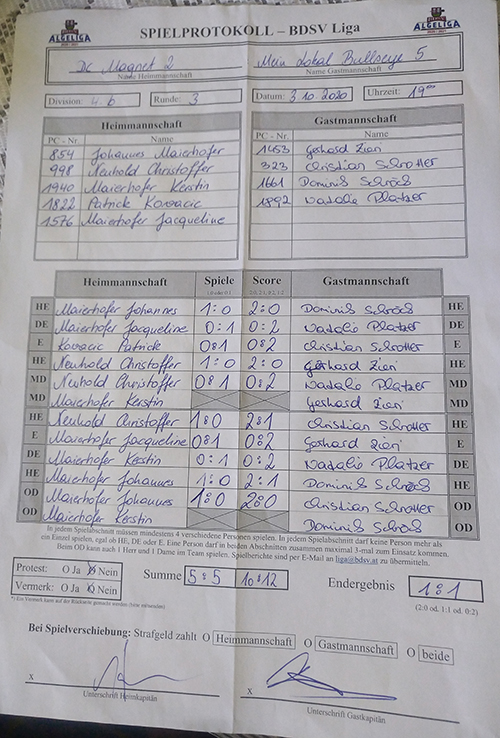 ALGELIGA
SPIELPROTOKOLL – BDSV Liga
ALGELIGA
Dc Magnet 2 Mein Lokal Bullseye 5
Name Heimmannschaft Name Gastmannschaft
Division: 4.b Runde: 3 Datum: 3.10.2020 Uhrzeit: 19⁰⁰
Heimmannschaft Gastmannschaft
PC - Nr. Name PC - Nr. Name
854 Johannes Maierhofer 1453 Gerhard Zieri
998 Neuhold Christoffer 323 Christian Schrotter
1940 Maierhofer Kerstin 1661 Dominik Schröck
1822 Patrick Kovacic 1892 Natalie Platzer
1576 Maierhofer Jacqueline
Heimmannschaft Spiele Score Gastmannschaft
HE Maierhofer Johannes 1:0 2:0 Dominik Schröck HE
DE Maierhofer Jacqueline 0:1 0:2 Natalie Platzer DE
E Kovacic Patrick 0:1 0:2 Christian Schrotter E
HE Neuhold Christoffer 1:0 2:0 Gerhard Zieri HE
MD Neuhold Christoffer 0:1 0:2 Natalie Platzer MD
MD Maierhofer Kerstin Gerhard Zieri MD
HE Neuhold Christoffer 1:0 2:1 Christian Schrotter HE
E Maierhofer Jacqueline 0:1 0:2 Gerhard Zieri E
DE Maierhofer Kerstin 0:1 0:2 Natalie Platzer DE
HE Maierhofer Johannes 1:0 2:1 Dominik Schröck HE
OD Maierhofer Johannes 1:0 2:0 Christian Schrotter OD
OD Maierhofer Kerstin Dominik Schröck OD
In jedem Spielabschnitt müssen mindestens 4 verschiedene Personen spielen. In jedem Spielabschnitt darf keine Person mehr als
ein Einzel spielen, egal ob HE, DE oder E. Eine Person darf in beiden Abschnitten zusammen maximal 3-mal zum Einsatz kommen.
Beim OD kann nach 1 Herr und 1 Dame im Team spielen. Spielberichte sind per E-Mail an liga@bdsv.at zu übermitteln.
Protest: O Ja O Nein Summe 5:5 10:12 Endergebnis 1:1
Vermerk: O Ja O Nein (2:0 od. 1:1 od. 0:2)
Bei Spielverschiebung: Strafgeld zahlt O Heimmannschaft O Gastmannschaft O beide
x x
Unterschrift Heimkapitän Unterschrift Gastkapitän